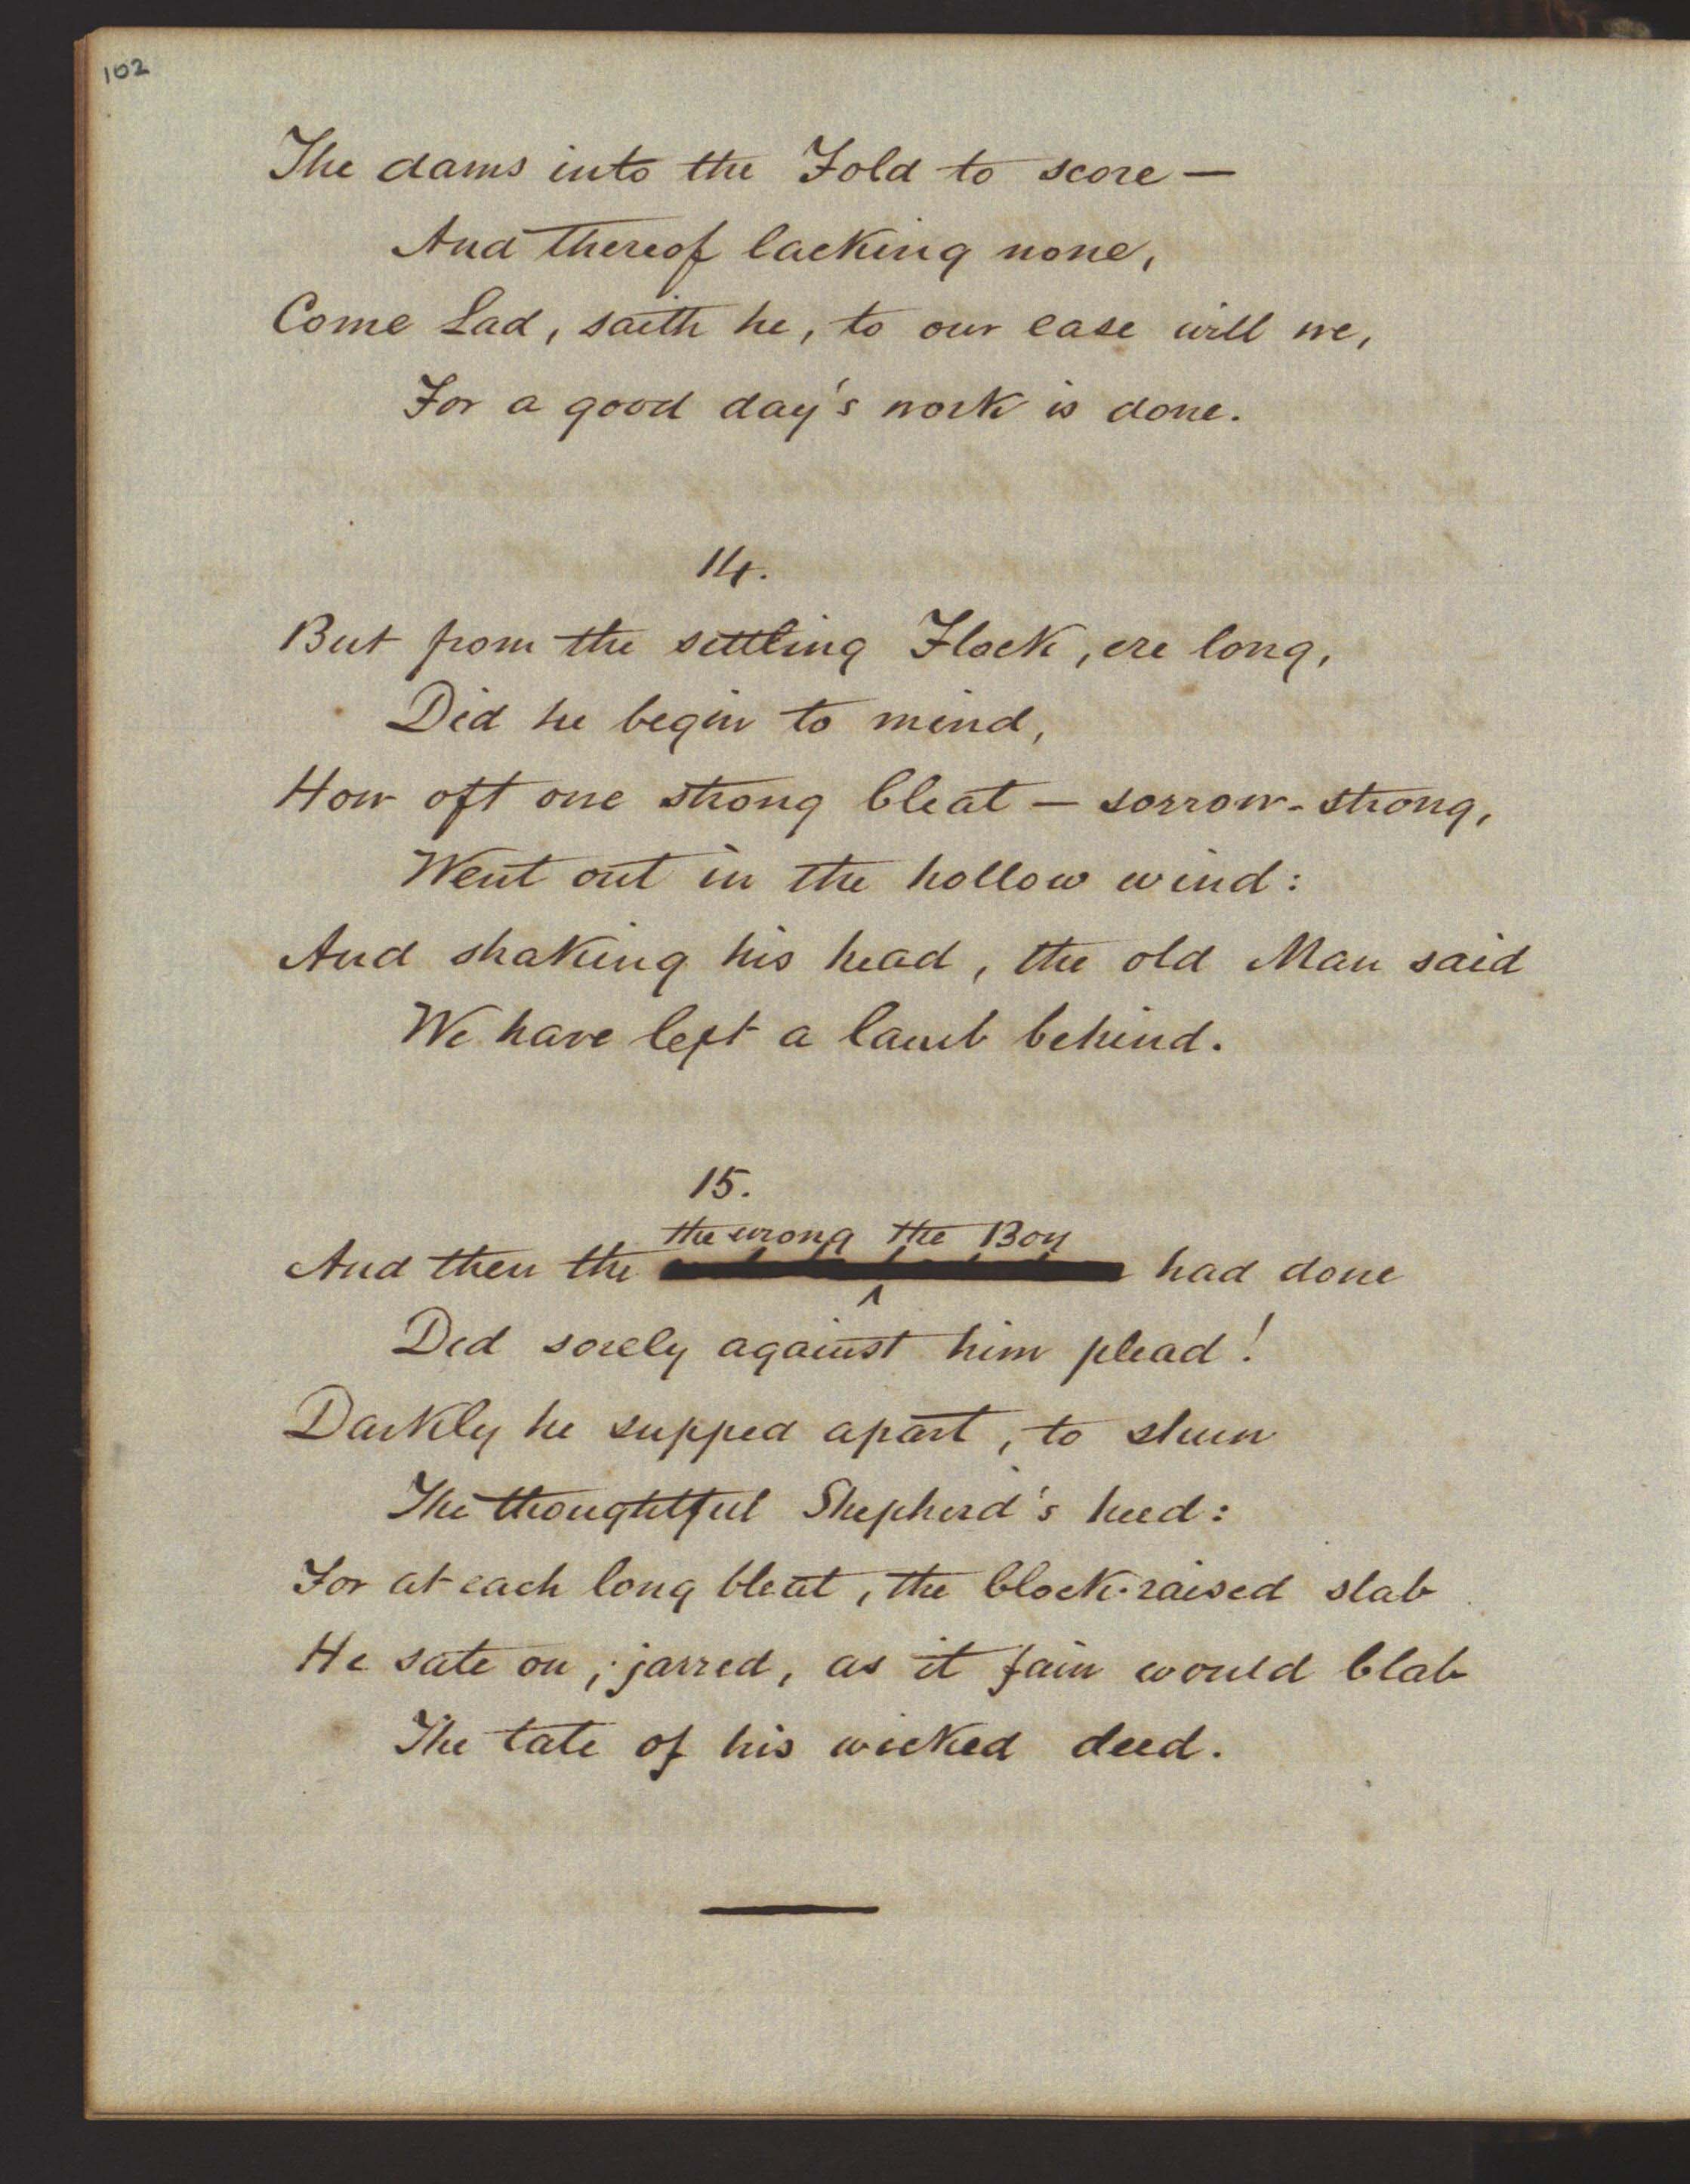 102
The dams into the Fold to score —
And thereof lacking none,
Come Lad, saith he, to our ease will we,
For a good day's work is done.
14.
But from the settling Flock, ere long,
Did he begin to mind,
How oft one strong bleat — sorrow-strong,
Went out in the hollow wind:
And shaking his head, the old Man said
We have left a lamb behind.
15.
the wrong the Boy
And then the had done
Did sorely against him plead!
Darkly he supped apart, to shun
The thoughtful Shepherd's heed:
For at each long bleat, the block-raised slab
He sate on, jarred, as it fain would blab
The tale of his wicked deed.